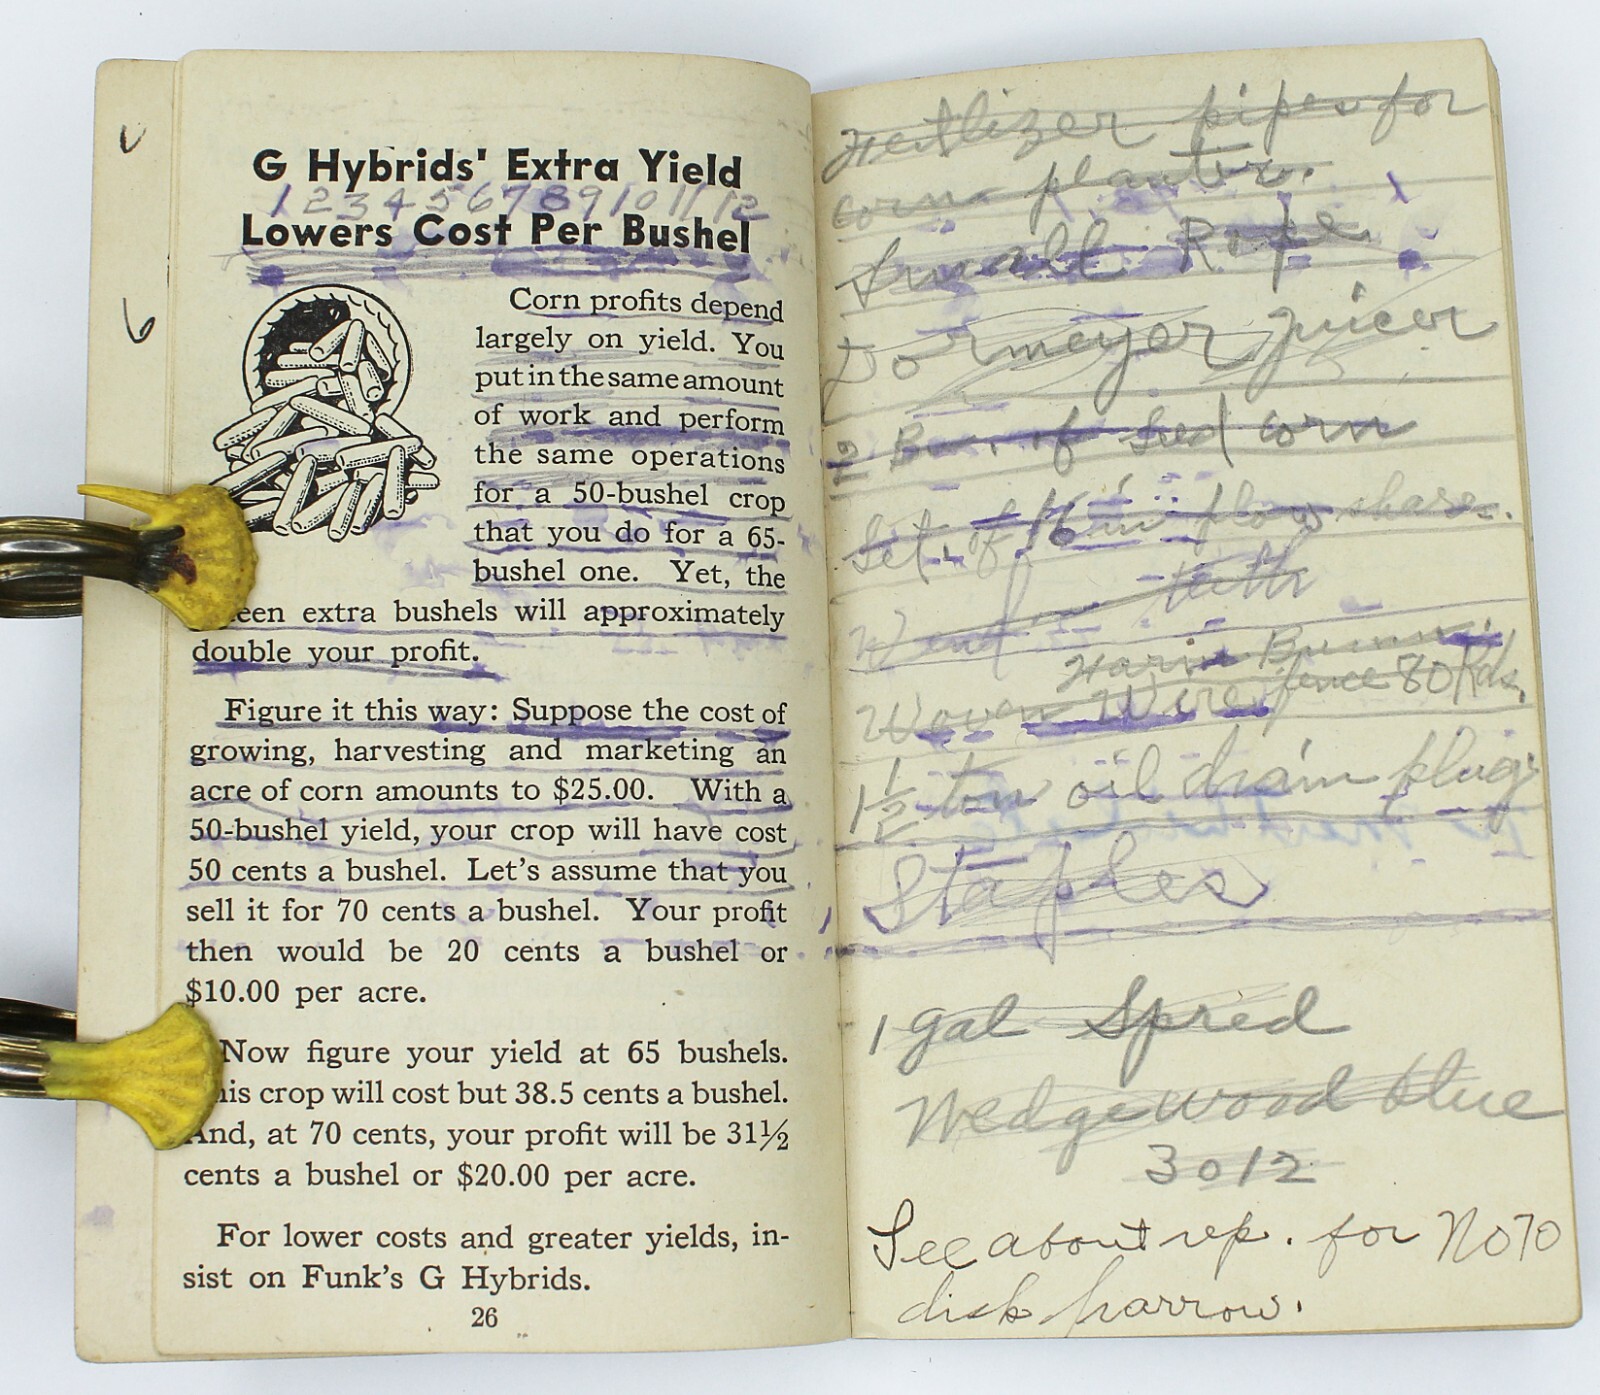 G Hybrids' Extra Yield
1 2 3 4 5 6 7 8 9 10 11 12
Lowers Cost Per Bushel
Corn profits depend
largely on yield. You
put in the same amount
of work and perform
the same operations
for a 50-bushel crop
that you do for a 65-
bushel one. Yet, the
een extra bushels will approximately
double your profit.
Figure it this way: Suppose the cost of
growing, harvesting and marketing an
acre of corn amounts to $25.00. With a
50-bushel yield, your crop will have cost
50 cents a bushel. Let's assume that you
sell it for 70 cents a bushel. Your profit
then would be 20 cents a bushel or
$10.00 per acre.
Now figure your yield at 65 bushels.
his crop will cost but 38.5 cents a bushel.
And, at 70 cents, your profit will be 31½
cents a bushel or $20.00 per acre.
For lower costs and greater yields, in-
sist on Funk's G Hybrids.
26
6
Fertlizer pipes for
corn planter.
Small Rope
Dormeyer juicer
Bu. of Seed corn
Set of 16 in plow shares.
teeth
Woven Wire fence 80 Rds.
1½ ton oil drain plug
Staples
1 gal Spred
Wedgewood blue
3012
See about rep. for No 70
disk harrow.